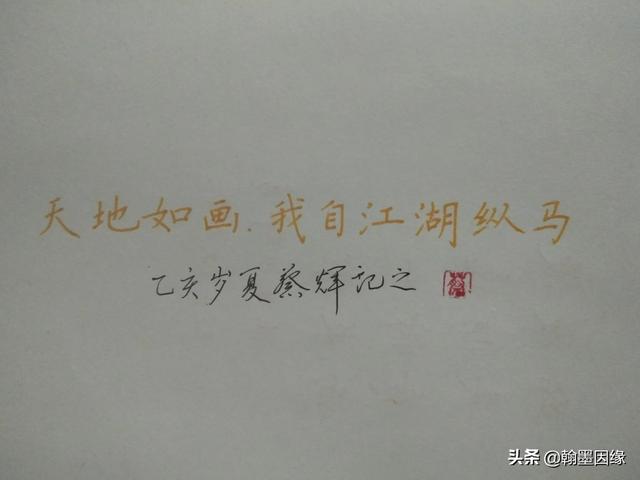 天地如画.我自江湖纵马
乙亥岁夏蔡辉记之
头条 @翰墨因缘